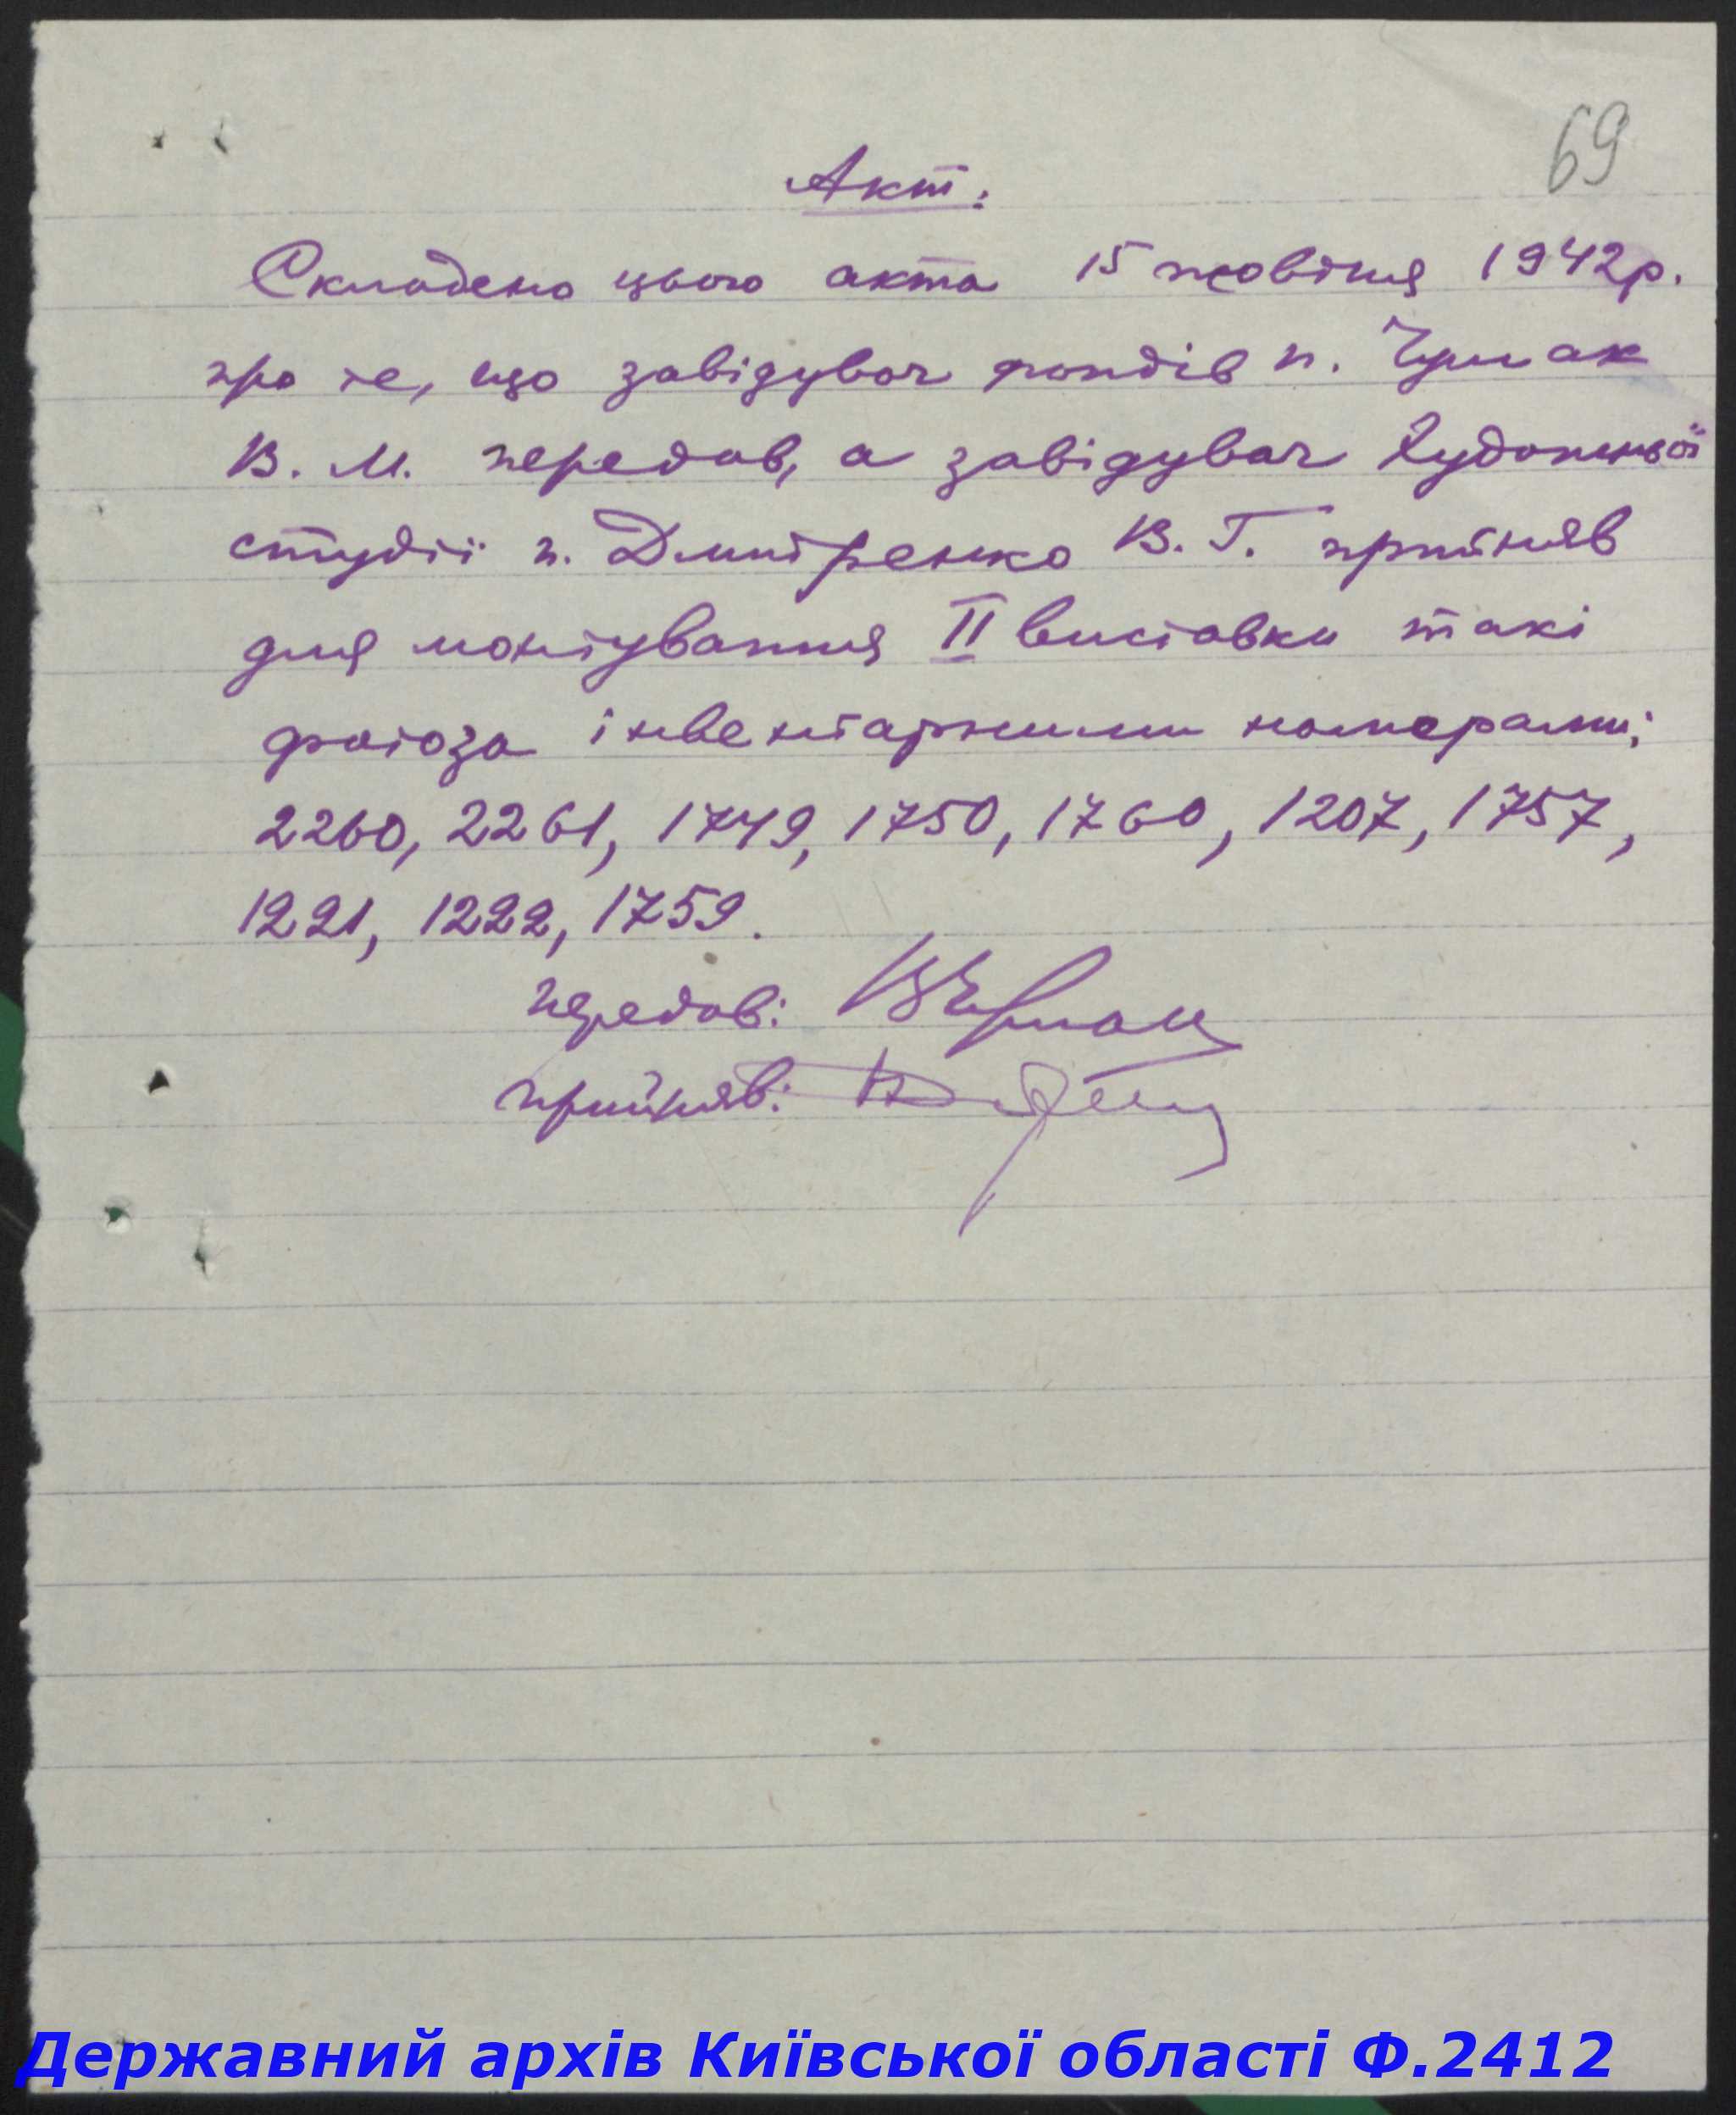 69
Акт.
Складено цього акта 15 жовтня 1942 р.
про те, що завідувач фондів п.
В. М. передав, а завідувач Художньої
студії п. Дмитренко В. Г. прийняв
для монтування II виставки такі
фото за інвентарними номерами:
2260, 2261, 1749, 1750, 1760, 1207, 1757,
1221, 1222, 1759.
передав:
прийняв:
Державний архів Київської області Ф.2412